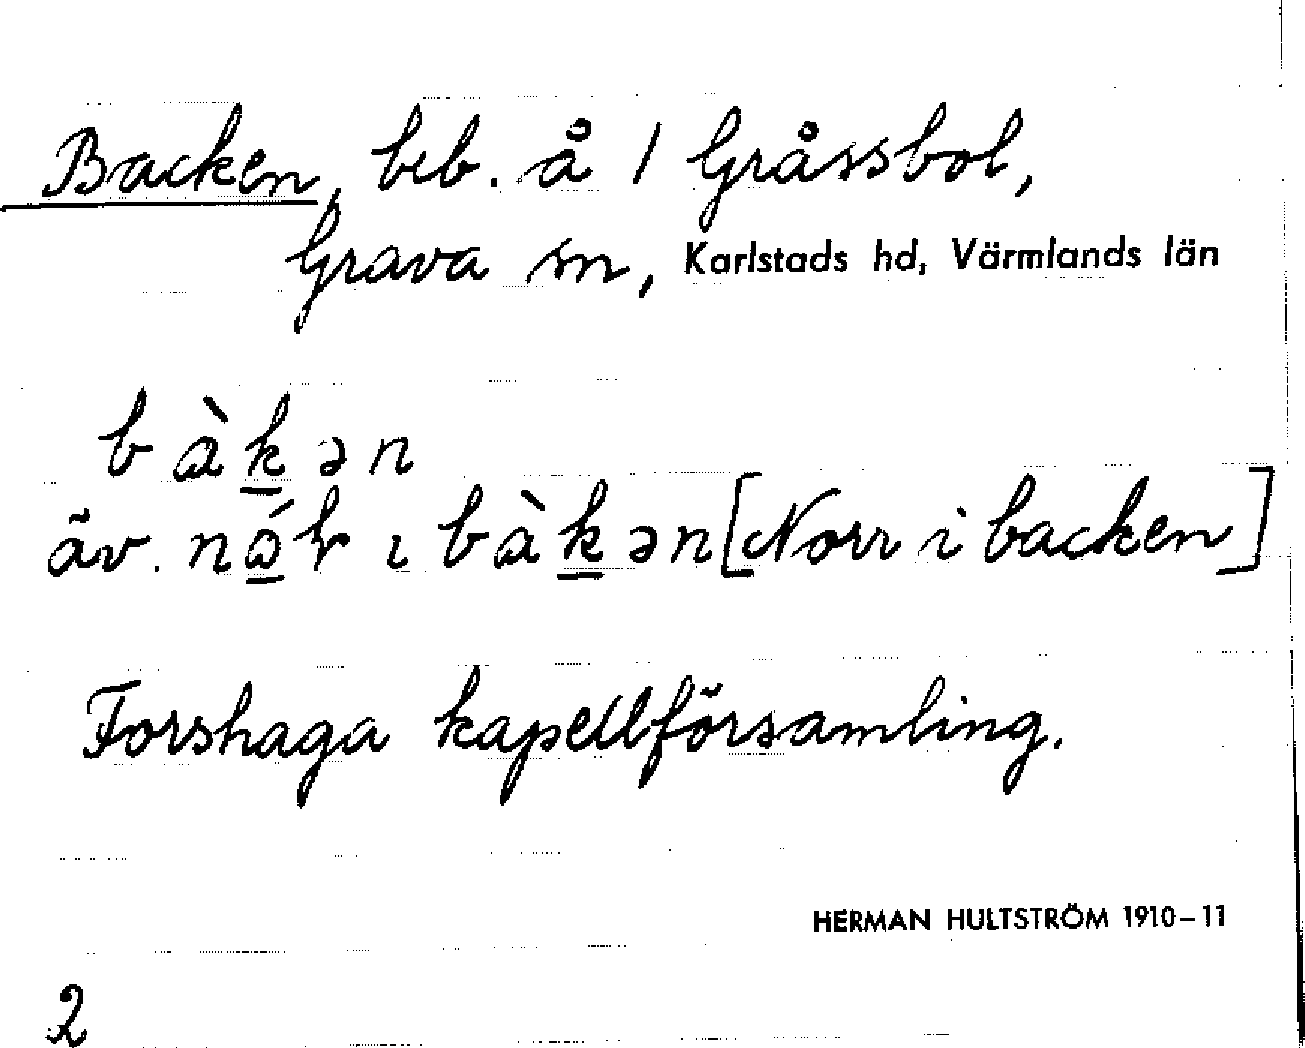 Backen, beb. å 1 Gråssbol,
Grava sn, Karlstads hd, Värmlands län
bàk̲ən
äv. nö̲́r ɩ bàk̲ən [Norr i backen]
Forshaga kapellförsamling.
HERMAN HULTSTRÖM 1910–11
2